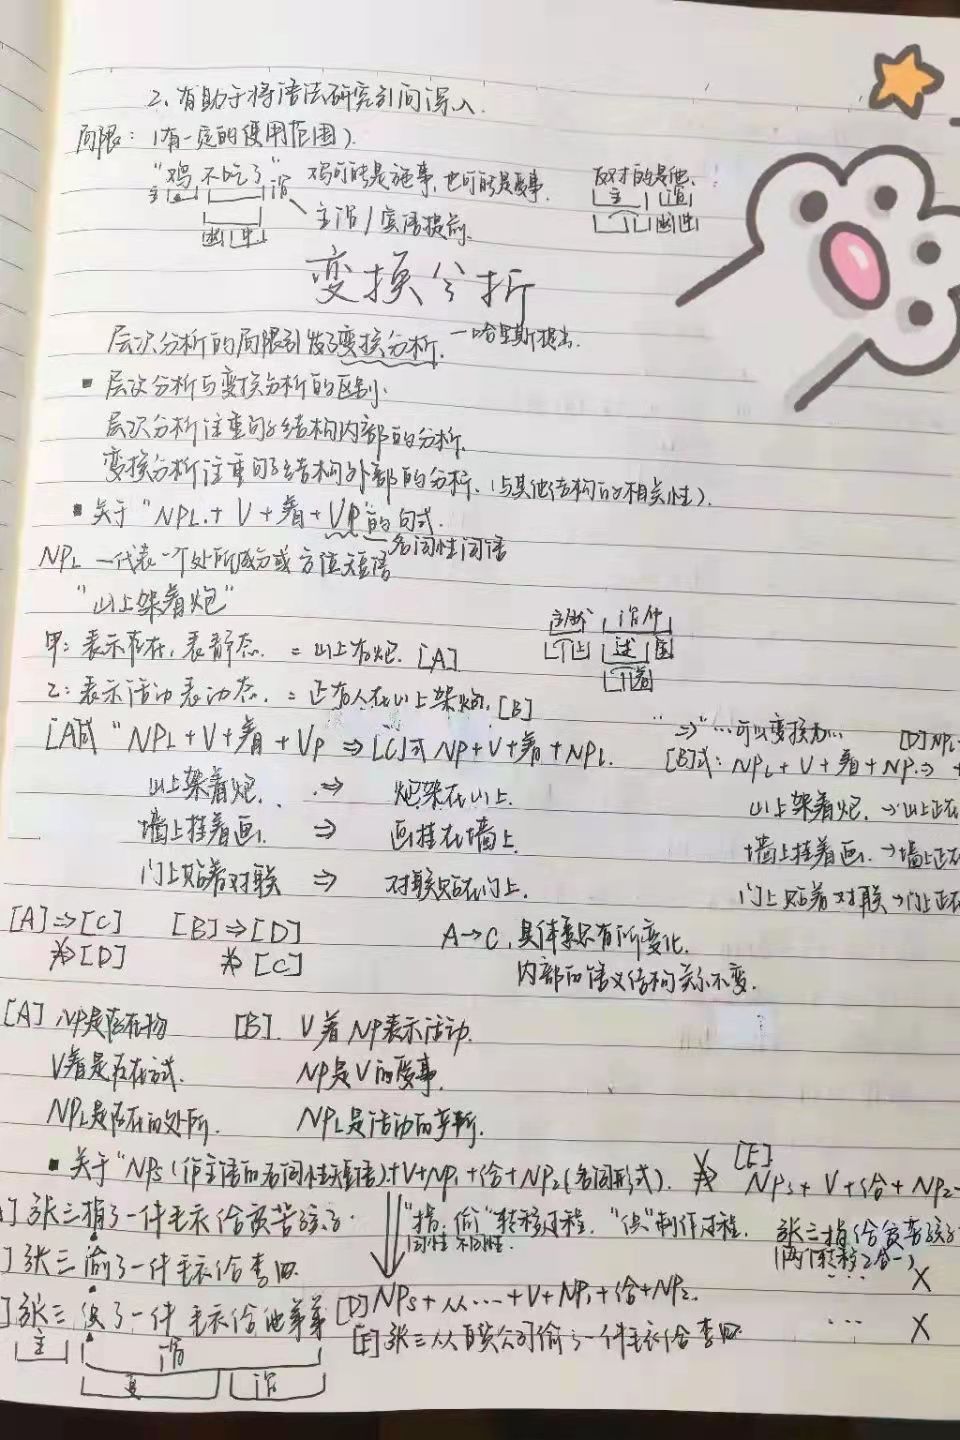 2、有助于将语法研究引向深入.
局限：（有一定的使用范围）.
"鸡不吃了" 鸡可能是施事，也可能是受事. 反对的是他.
主 谓 主 谓
主谓/宾语提前.
变换分析
层次分析的局限引发了变换分析. —哈里斯提出.
▪ 层次分析与变换分析的区别.
层次分析注重句子结构内部的分析.
变换分析注重句子结构外部的分析.（与其他结构的相关性）.
▪ 关于"NPL+V+着+VP"的句式.
名词性词语
NPL —代表一个处所成分或方位短语
"山上架着炮"
甲：表示存在，表静态. = 山上有炮. [A]
乙：表示活动表动态. = 正有人在山上架炮. [B]
"⇒"…可以变换为… [D]NPL
[A]式 "NPL+V+着+VP ⇒ [C]式 NP+V+着+NPL. [B]式：NPL+V+着+NP.⇒
山上架着炮. ⇒ 炮架在山上. 山上架着炮. →山上正在
墙上挂着画. ⇒ 画挂在墙上. 墙上挂着画. →墙上正在
门上贴着对联 ⇒ 对联贴在门上. 门上贴着对联→门上正在
[A]⇒[C] [B]⇒[D] A→C，具体意义有所变化.
⇏[D] ⇏[C] 内部的语义结构关系不变.
[A] NP是存在物 [B]. V着NP表示活动.
V着是存在方式. NP是V的受事.
NPL是存在的处所. NPL是活动的场所.
▪ 关于"NPS（作主语的名词性短语）+V+NP1+给+NP2（名词形式）. ⇏ [E] NPS+V+给+NP2
张三捐了一件毛衣给贫苦孩子. "捐、偷"转移过程. "织"制作过程. 张三捐给贫苦孩子
（两个转移合一）
张三偷了一件毛衣给李四. … X
张三织了一件毛衣给他弟弟 [D]NPS+从……+V+NP1+给+NP2. … X
主 谓 [E]张三从百货公司偷了一件毛衣给李四